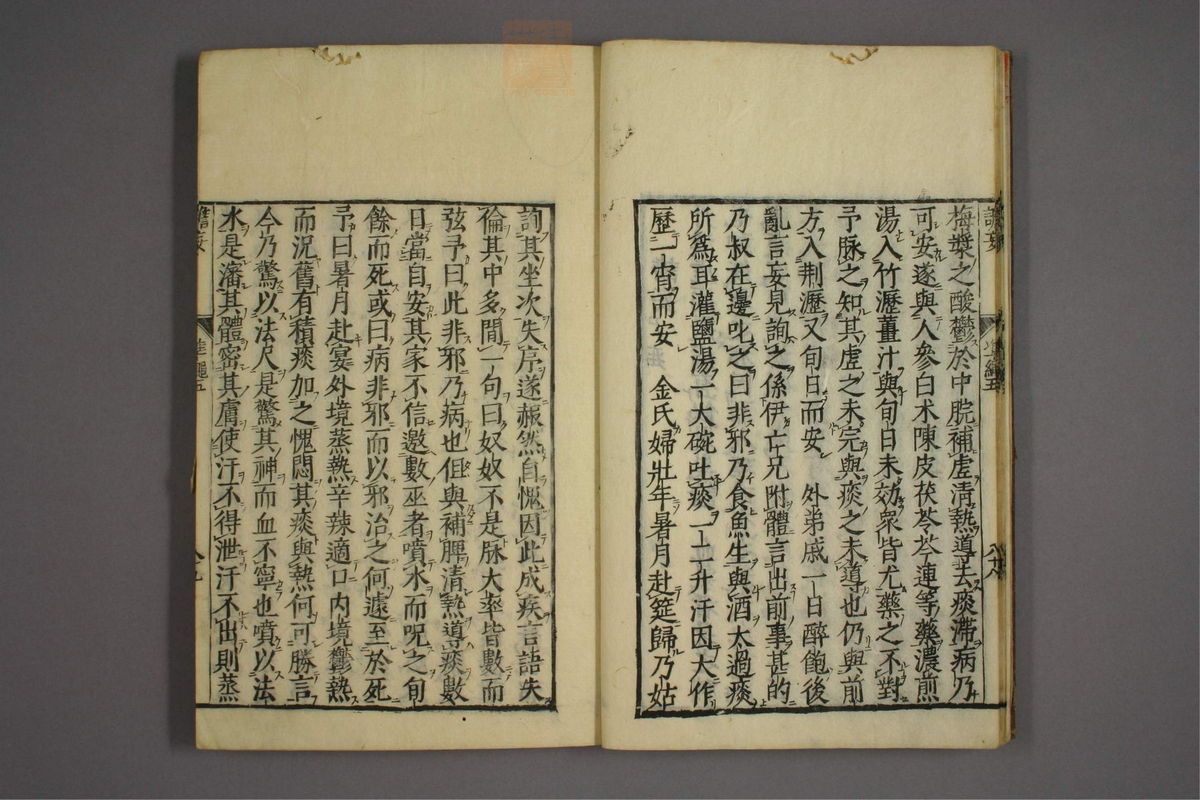 梅漿之酸鬱於中脘補虛淸熱導去痰滯病乃
可安遂與人參白朮陳皮茯苓芩連等藥濃煎
湯入竹瀝薑汁與旬日未効衆皆尤藥之不對
予脉之知其虛之未完與痰之未導也仍與前
方入荆瀝又旬日而安　外弟戚一日醉飽後
亂言妄見詢之係伊亡兄附體言出前事甚的
乃叔在邊叱之曰非邪乃食魚生與酒太過痰
所爲耳灌鹽湯一大碗吐痰一二升汗因大作
歷一宵而安　金氏婦壯年暑月赴筵歸乃姑
詢其坐次失序遂赧然自愧因此成疾言語失
倫其中多間一句曰奴奴不是脉大率皆數而
弦予曰此非邪乃病也但與補脾淸熱導痰數
日當自安其家不信邀數巫者噴水而呪之旬
餘而死或曰病非邪而以邪治之何遽至於死
予曰暑月赴宴外境蒸熱辛辣適口內境鬱熱
而況舊有積痰加之愧悶其痰與熱何可勝言
今乃驚以法尺是驚其神而血不寧也噴以法
水是瀋其體密其膚使汗不得泄汗不出則蒸